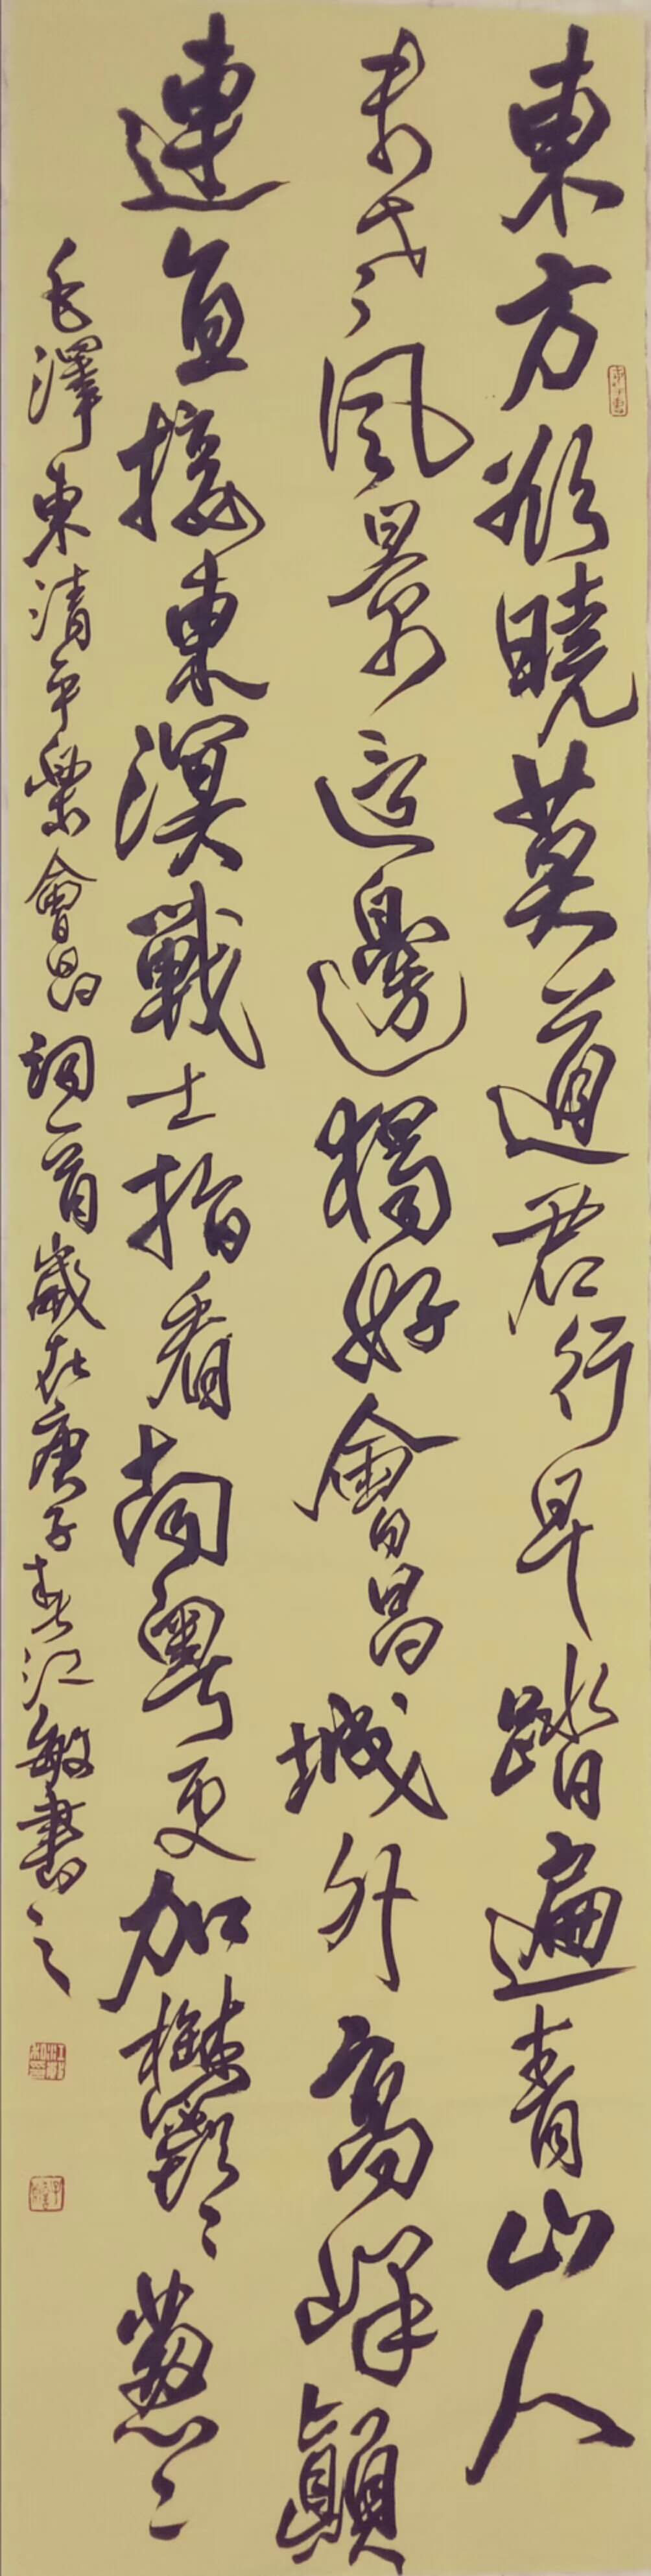 東方欲曉莫道君行早踏遍青山人
未老風景這邊獨好會昌城外高峰顛
連直接東溟戰士指看南粵更加鬱々葱々
毛澤東清平樂會昌詞一首歲在庚子春江敏書之